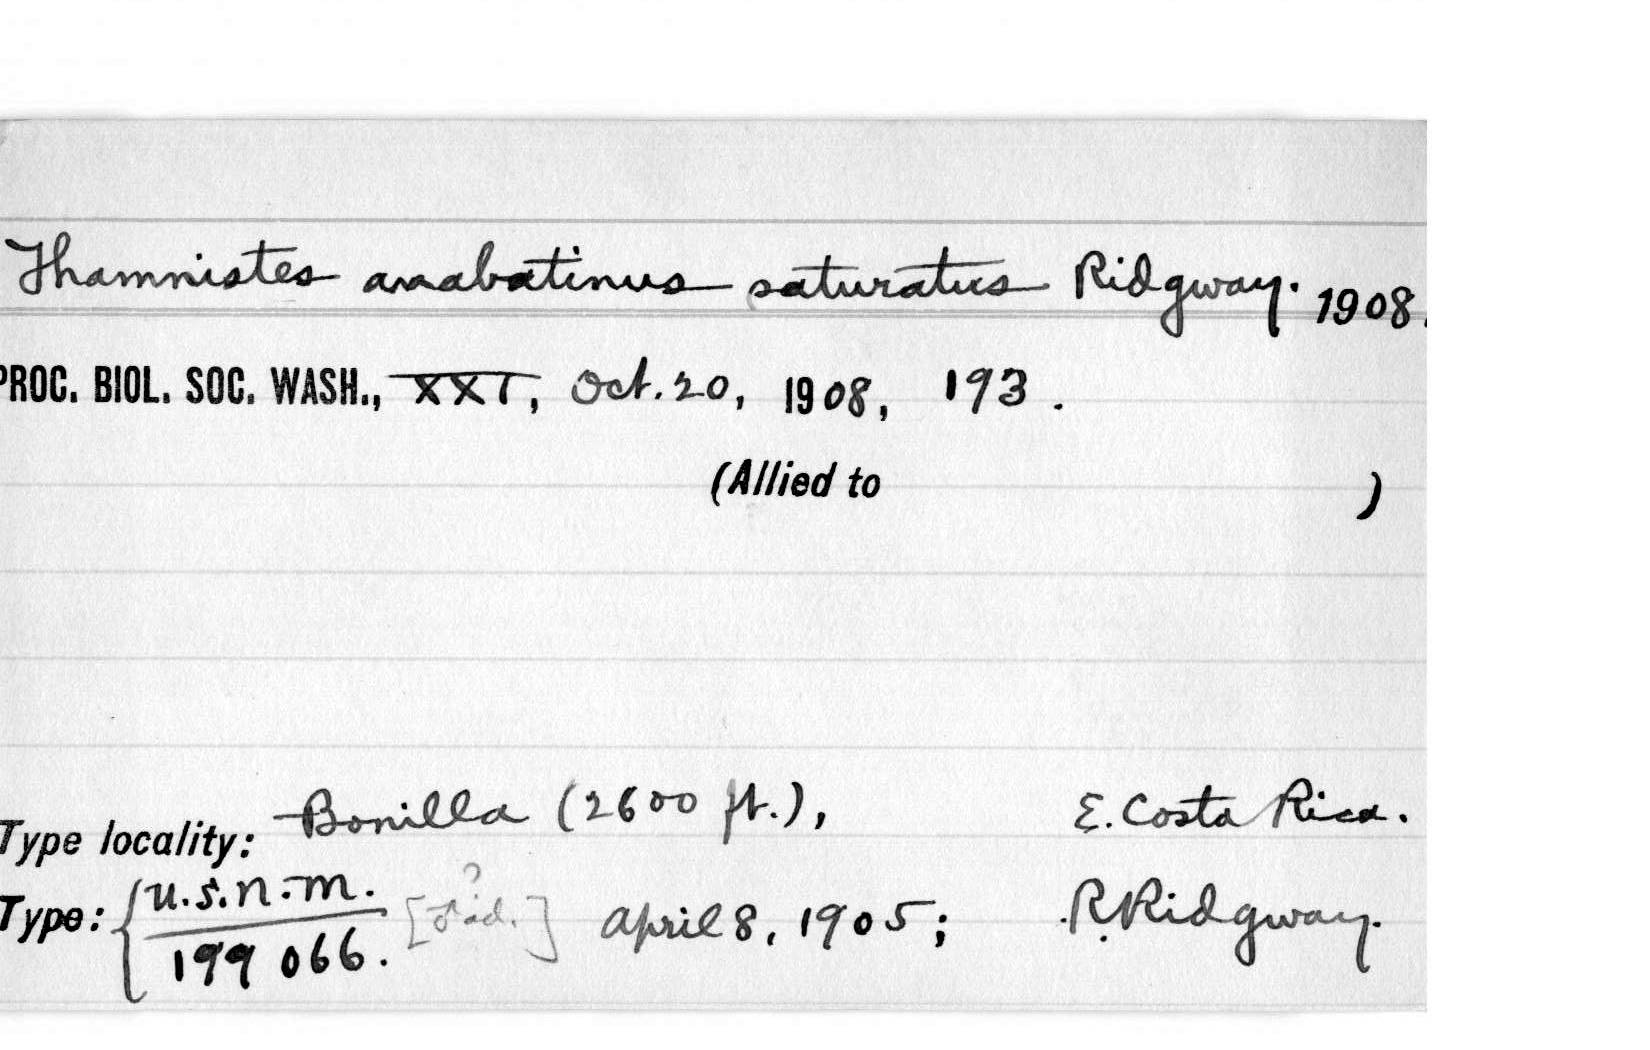 Thamnistes anabatinus saturatus Ridgway. 1908.
PROC. BIOL. SOC. WASH., XXI, Oct. 20, 1908, 193.
(Allied to )
Type locality: Bonilla (2600 ft.), E. Costa Rica.
?
Type: { U.S.N.M. [♂ ad.] April 8, 1905; R. Ridgway.
199 066.